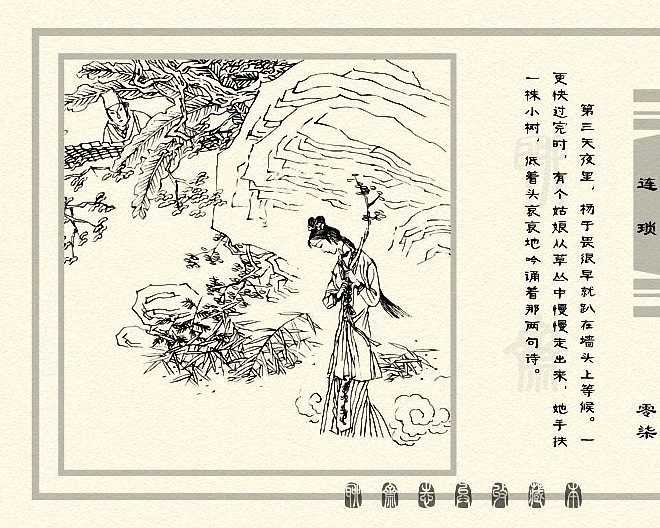 第三天夜里，杨于畏很早就趴在墙头上等候。一
更快过完时，有个姑娘从草丛中慢慢走出来，她手扶
一株小树，低着头哀哀地吟诵着那两句诗。
连琐
零柒